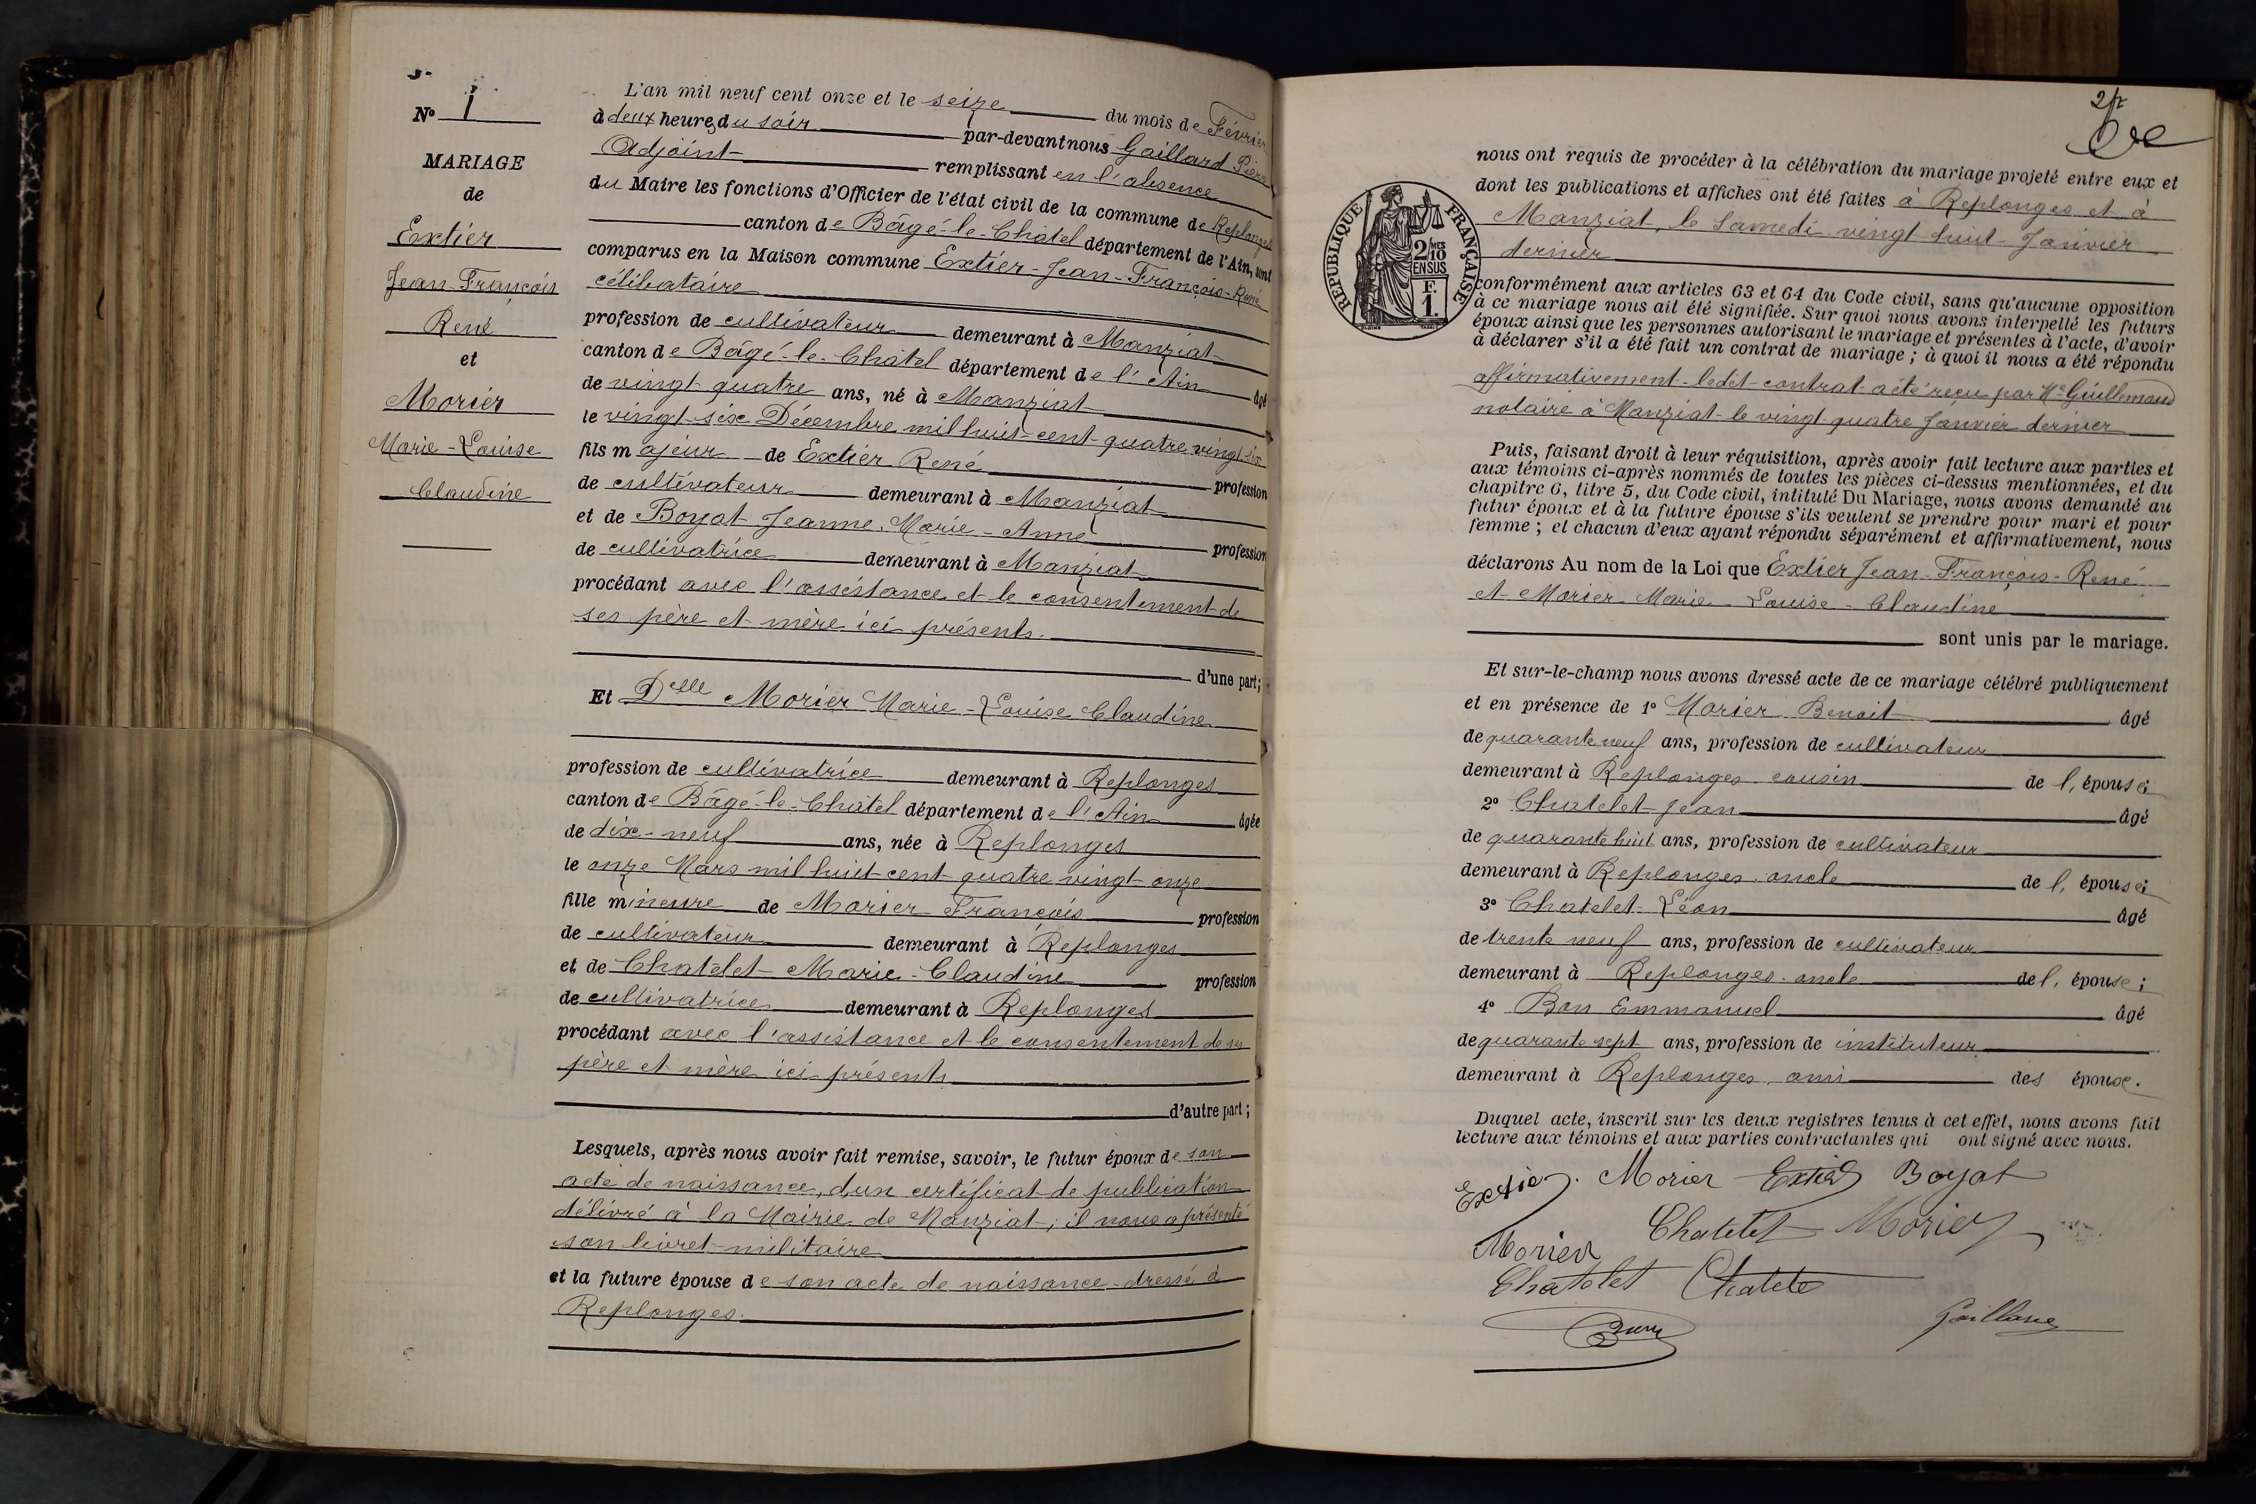 Nº 1
MARIAGE
de
Extier
Jean-François
René
et
Morier
Marie-Louise
Claudine
L'an mil neuf cent onze et le seize du mois de Février
à deux heures du soir par-devant nous Gaillard Pierre
Adjoint remplissant en l'absence
du Maire les fonctions d'Officier de l'état civil de la commune de Replonges
canton de Bâgé-le-Châtel département de l'Ain, sont
comparus en la Maison commune Extier Jean-François-René
célibataire
profession de cultivateur demeurant à Manziat
canton de Bâgé-le-Châtel département de l'Ain âgé
de vingt quatre ans, né à Manziat
le vingt-six Décembre mil huit-cent-quatre vingt six
fils majeur de Extier René profession
de cultivateur demeurant à Manziat
et de Boyat Jeanne-Marie-Anne profession
de cultivatrice demeurant à Manziat
procédant avec l'assistance et le consentement de
ses père et mère ici présents.
d'une part;
Et Delle Morier Marie-Louise Claudine
profession de cultivatrice demeurant à Replonges
canton de Bâgé-le-Châtel département de l'Ain âgée
de dix-neuf ans, née à Replonges
le onze Mars mil huit cent quatre vingt onze
fille mineure de Morier François profession
de cultivateur demeurant à Replonges
et de Chatelet Marie-Claudine profession
de cultivatrice demeurant à Replonges
procédant avec l'assistance et le consentement de ses
père et mère ici présents
d'autre part;
Lesquels, après nous avoir fait remise, savoir, le futur époux de son
acte de naissance, d'un certificat de publication
délivré à la Mairie de Manziat; il nous a présenté
son livret militaire
et la future épouse de son acte de naissance dressé à
Replonges.
nous ont requis de procéder à la célébration du mariage projeté entre eux et
dont les publications et affiches ont été faites à Replonges et à
Manziat, le Samedi vingt huit Janvier
dernier
RÉPUBLIQUE FRANÇAISE
2/10 MES
EN SUS
F.
1.
conformément aux articles 63 et 64 du Code civil, sans qu'aucune opposition
à ce mariage nous ait été signifiée. Sur quoi nous avons interpellé les futurs
époux ainsi que les personnes autorisant le mariage et présentes à l'acte, d'avoir
à déclarer s'il a été fait un contrat de mariage; à quoi il nous a été répondu
affirmativement ledit contrat acté reçu par Me Guillemaud
notaire à Manziat le vingt quatre Janvier dernier
Puis, faisant droit à leur réquisition, après avoir fait lecture aux parties et
aux témoins ci-après nommés de toutes les pièces ci-dessus mentionnées, et du
chapitre 6, titre 5, du Code civil, intitulé Du Mariage, nous avons demandé au
futur époux et à la future épouse s'ils veulent se prendre pour mari et pour
femme; et chacun d'eux ayant répondu séparément et affirmativement, nous
déclarons Au nom de la Loi que Extier Jean-François-René
et Morier Marie-Louise-Claudine
sont unis par le mariage.
Et sur-le-champ nous avons dressé acte de ce mariage célébré publiquement
et en présence de 1º Morier Benoit âgé
de quarante neuf ans, profession de cultivateur
demeurant à Replonges cousin de l, épouse;
2º Chatelet Jean âgé
de quarante huit ans, profession de cultivateur
demeurant à Replonges oncle de l, épouse;
3º Chatelet Léon âgé
de trente neuf ans, profession de cultivateur
demeurant à Replonges oncle de l, épouse;
4º Bon Emmanuel âgé
de quarante sept ans, profession de instituteur
demeurant à Replonges, ami des époux.
Duquel acte, inscrit sur les deux registres tenus à cet effet, nous avons fait
lecture aux témoins et aux parties contractantes qui ont signé avec nous.
Extier. Morier Extier Boyat
Morier Chatelet Morier
Chatelet Chatelet
Gaillard